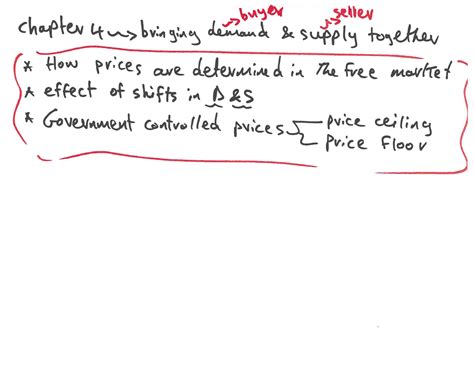 buyer seller
chapter 4 → bringing demand & supply together
* How prices are determined in The free market
* effect of shifts in D & S
* Government controlled prices price ceiling
price Floor